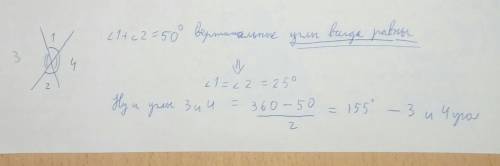 1
3
4
2
∠1+∠2=50° вертикальные углы всегда равны
⇓
∠1=∠2=25°
Ну и углы 3 и 4 = (360-50)/2 = 155° - 3 и 4 угол